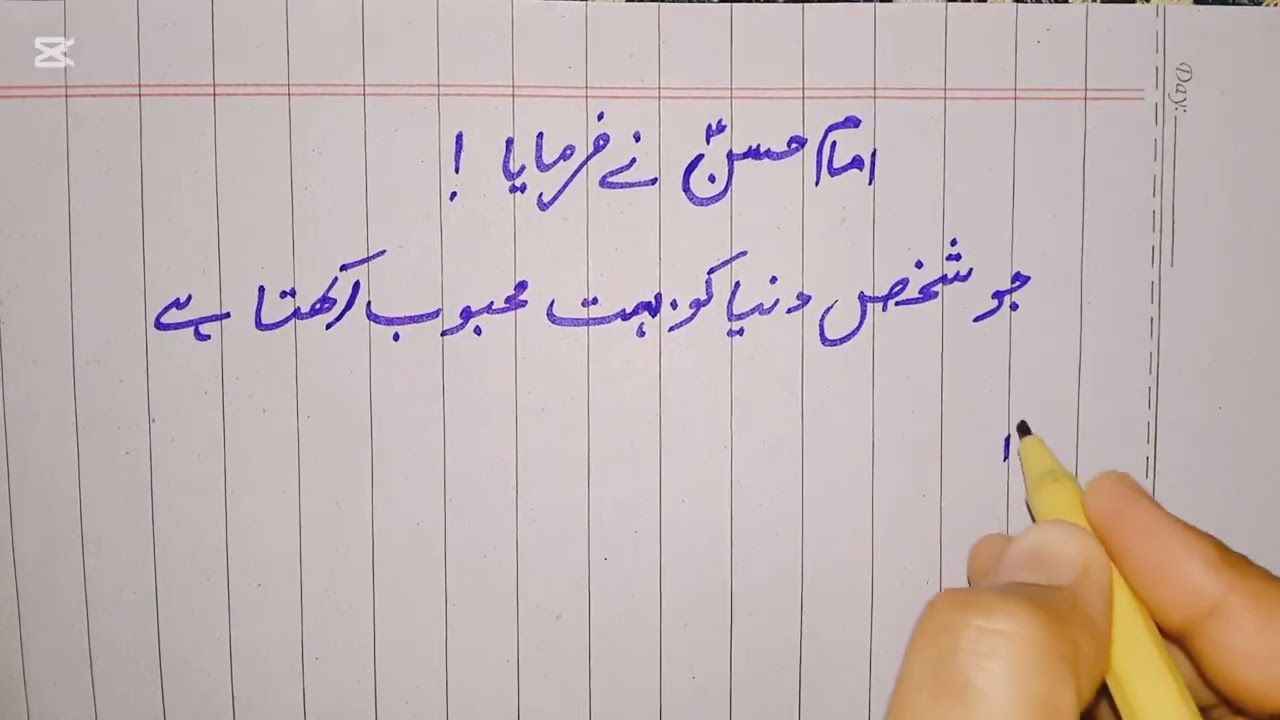 امام حسنؑ نے فرمایا !
جو شخص دنیا کو بہت محبوب رکھتا ہے
ا
Day: